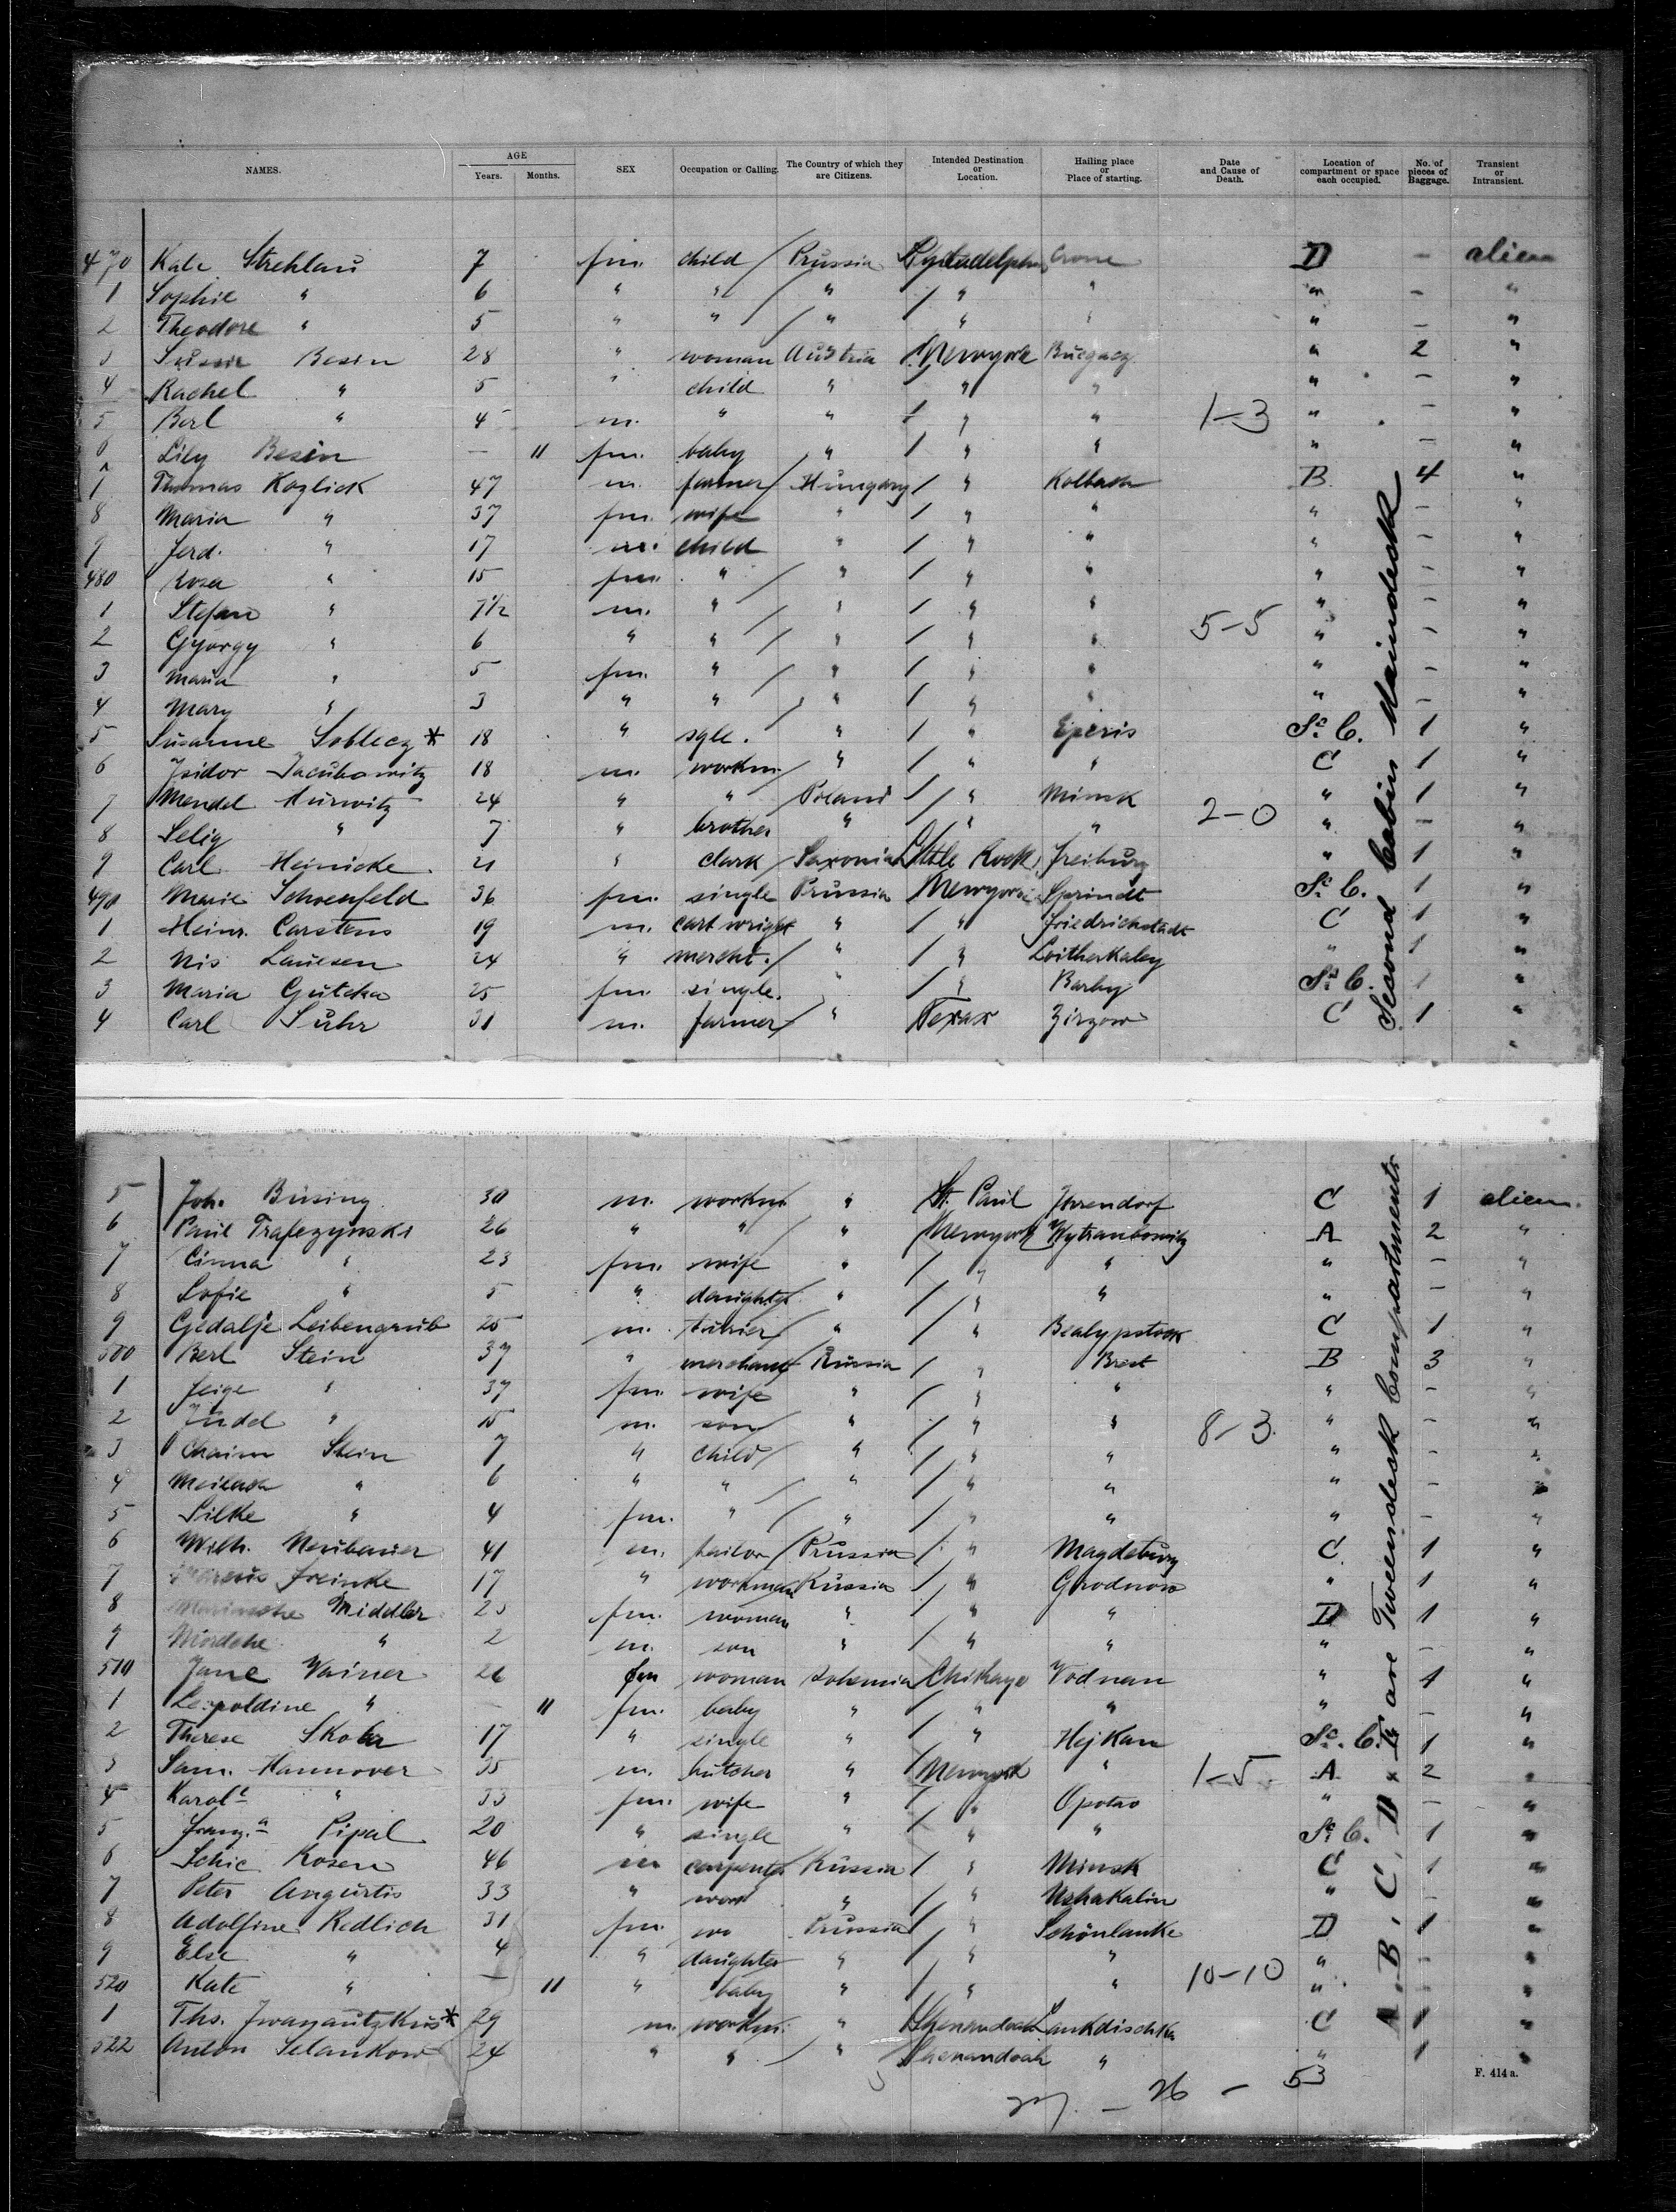 NAMES. AGE Years. Months. SEX Occupation or Calling. The Country of which they are Citizens. Intended Destination or Location. Hailing place or Place of starting. Date and Cause of Death. Location of compartment or space each occupied. No. of pieces of Baggage. Transient or Intransient.
470 Kate Strehlau 7 fm. child Prussia Philadelphia Crone D - alien
1 Sophie " 6 " " " " " " - "
2 Theodore " 5 " " " " " " - "
3 Besin 28 " woman Austria Newyork Buczacz " 2 "
4 Rachel " 5 " child " " " " - "
5 Berl " 4 m. " " " " 1-3 " - "
6 Lily Besin - 11 fm. baby " " " " - "
7 Thomas Kozlick 47 m. farmer Hungary " Kolbach B. 4 "
8 Maria " 37 fm. wife " " " " - "
9 Ferd. " 17 m. child " " " " - "
480 Rosa " 15 fm. " " " " " - "
1 Stefan " 7 1/2 m. " " " " " - "
2 György " 6 " " " " " 5-5 " - "
3 Maria " 5 fm. " " " " " - "
4 Mary " 3 " " " " " " - "
5 Susanne Soblecz * 18 " sgle. " " Eperis Sc. C. 1 "
6 Isidor Jacubowitz 18 m. workm. " " " C 1 "
7 Mendel Hurwitz 24 " " Poland " Minsk " 1 "
8 Selig " 7 " brother " " " 2-0 " - "
9 Carl Heinicke 21 " clark Saxonia Little Rock Freiburg " 1 "
490 Marie Schoenfeld 36 fm. single Prussia Newyork Sprindt Sc. C. 1 "
1 Heinr. Carstens 19 m. cart wright " " Friedrichstadt C 1 "
2 Nis Lauesen 24 " mercht. " " Loitherkaley " 1 "
3 Maria Gutcka 25 fm. single. " " Barby Sc. C. 1 "
4 Carl Suhr 31 m. farmer " Texas Zirzow C 1 "
Second Cabin Maindeck
5 Joh. Büsing 30 m. workm. " St. Paul Ihrendorf C 1 alien.
6 Paul Trafczynski 26 " " " Newyork Wytrambowitz A 2 "
7 Cinna " 23 fm. wife " " " " - "
8 Sofie " 5 " daughter " " " " - "
9 Gedalje Leibengrub 25 m. " " Bealypstock C 1 "
500 Berl Stein 37 " merchant Russia " Brest B 3 "
1 Feige " 37 fm. wife " " " " - "
2 Judel " 15 m. son " " " 8-3. " - "
3 Chaim Stein 7 " child " " " " - "
4 " 6 " " " " " " - "
5 Silke " 4 fm. " " " " " - "
6 Wilh. Neubauer 41 m. tailor Prussia " Magdeburg C 1 "
7 Freinke 17 " workman Russia " Grodnow " 1 "
8 Marinsche Middler 25 fm. woman " " " D 1 "
9 Mordche " 2 m. son " " " " - "
510 Jane Wainer 26 fm woman Bohemia Chikago Vodnan " 1 "
1 Leopoldine " - 11 fm. baby " " " " - "
2 Therese Skola 17 " single " " Hejkan Sc. C. 1 "
3 Sam. Hannover 35 m. butcher " Newyork " 1-5 A 2 "
4 " 33 fm. wife " " Opotno " - "
5 Pipal 20 " single " " " Sc. C. 1 "
6 Schie Rosen 46 m carpenter Russia " Minsk C 1 "
7 Peter Angurtis 33 " work " " " - "
8 Adolfine Redlich 31 fm. wo Prussia " Schönlanke D 1 "
9 Else " 4 " daughter " " " " - "
520 Kate " - 11 " baby " " " 10-10 " - "
1 Ths. Iwanautzkus * 29 m. workm. " Shenandoah Lankdischka C 1 "
522 Anton Selankow 24 " " " Shenandoah " " 1 "
A. B. C. D & E are Tweendeck Compartments
27. - 26 - 53
F. 414 a.